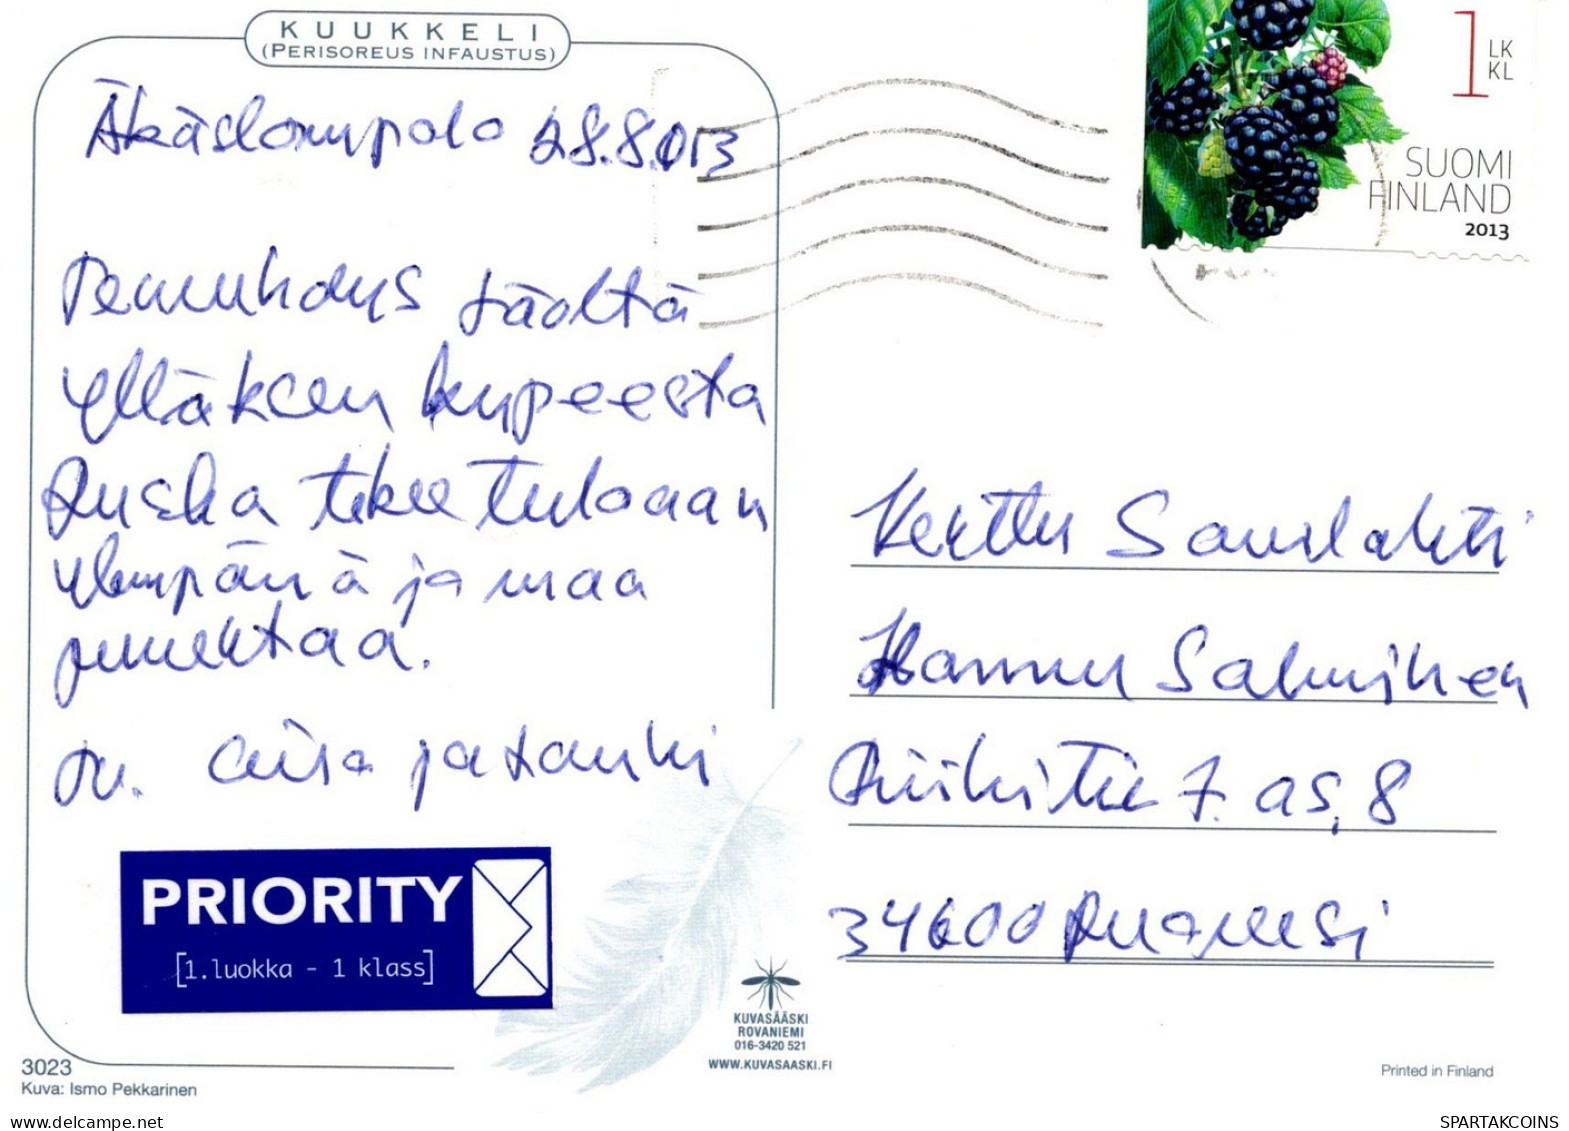 KUUKKELI
(PERISOREUS INFAUSTUS)
Äkäslompolo 28.8.013
täältä
Ylläksen kupeesta
Ruska tekee tuloaan
ympärillä ja maa
punertaa.
tv.
1 LK
KL
SUOMI
FINLAND
2013
Kerttu Saurlahti
Hannu Salminen
7. as, 8
34600 Ruovesi
PRIORITY
[1.luokka - 1 klass]
KUVASÄÄSKI
ROVANIEMI
016-3420 521
WWW.KUVASAASKI.FI
3023
Kuva: Ismo Pekkarinen
Printed in Finland
www.delcampe.net
SPARTAKCOINS